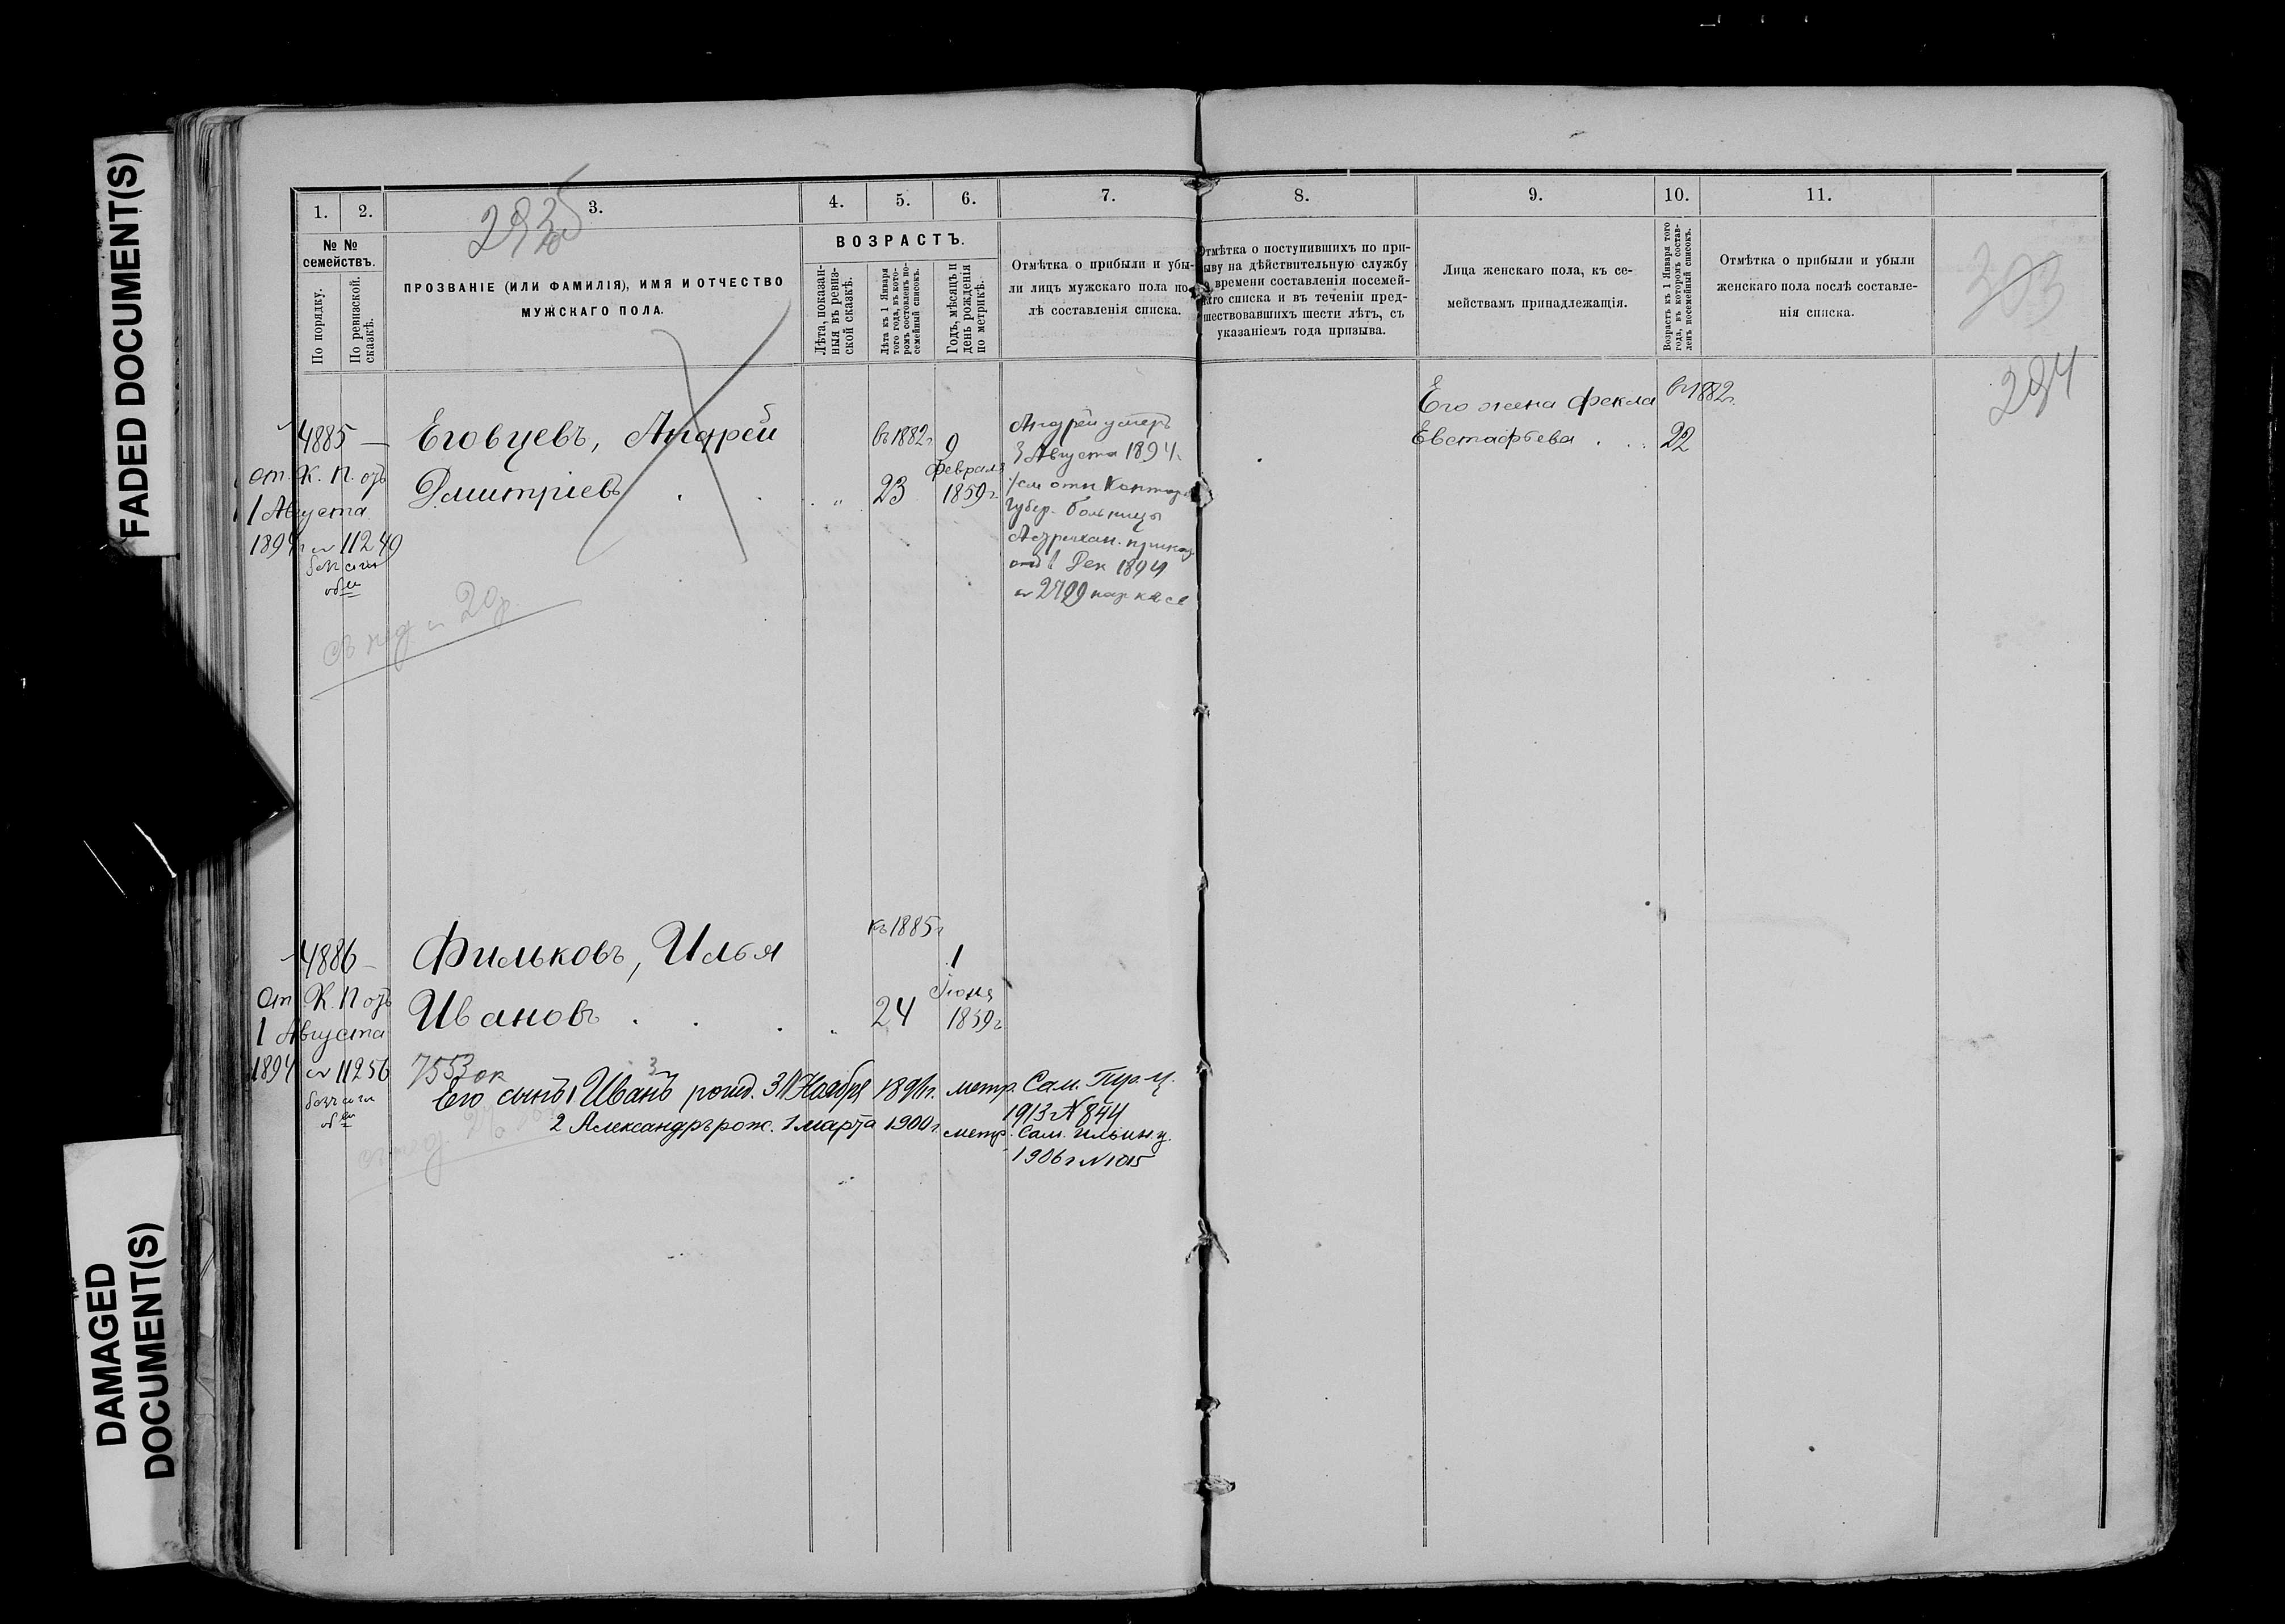 FADED DOCUMENT(S)
DAMAGED
DOCUMENT(S)
1. 2. 3. 4. 5. 6. 7. 8. 9. 10. 11.
№ №
семействъ.
По порядку.
По ревизской
сказкѣ.
ПРОЗВАНІЕ (ИЛИ ФАМИЛІЯ), ИМЯ И ОТЧЕСТВО
МУЖСКАГО ПОЛА.
ВОЗРАСТЪ.
Лѣта, показан-
ныя въ ревиз-
ской сказкѣ.
Лѣта къ 1 Января
того года, въ кото-
ромъ составленъ по-
семейный списокъ.
Годъ, мѣсяцъ и
день рожденія
по метрикѣ.
Отмѣтка о прибыли и убы-
ли лицъ мужскаго пола по-
лѣ составленія списка.
Отмѣтка о поступившихъ по при-
ыву на дѣйствительную службу
времени составленія посемей-
аго списка и въ теченіи пред-
шествовавшихъ шести лѣтъ, съ
указаніемъ года призыва.
Лица женскаго пола, къ се-
мействамъ принадлежащія.
Возрастъ къ 1 Января того
года, въ которомъ состав-
ленъ посемейный списокъ.
Отмѣтка о прибыли и убыли
женскаго пола послѣ составле-
нія списка.
303
294
4885 —
от К. П. отъ
1 Августа
1894 г № 11249
Еговцевъ, Андрей
Дмитріевъ
въ 1882 г
23
9
Февраля
1859 г
Андрей умеръ
3 Августа 1894 г.
Губер. больницы
1 Дек 1894
№ 2799
Его жена Фекла
Евстафьева
въ 1882 г.
22
4886 —
От К. П отъ
1 Августа
1894 № 11256
Фильковъ, Илья
Ивановъ
къ 1885 г
24
1
Іюня
1859 г
7553 ок
Его сынъ 1 Иванъ рожд. Ноября
метр. Сам.
1913 г № 844
2 Александръ рож. 1 марта 1900 г.
метр. Сам. Ильин. ц.
1906 г № 1015